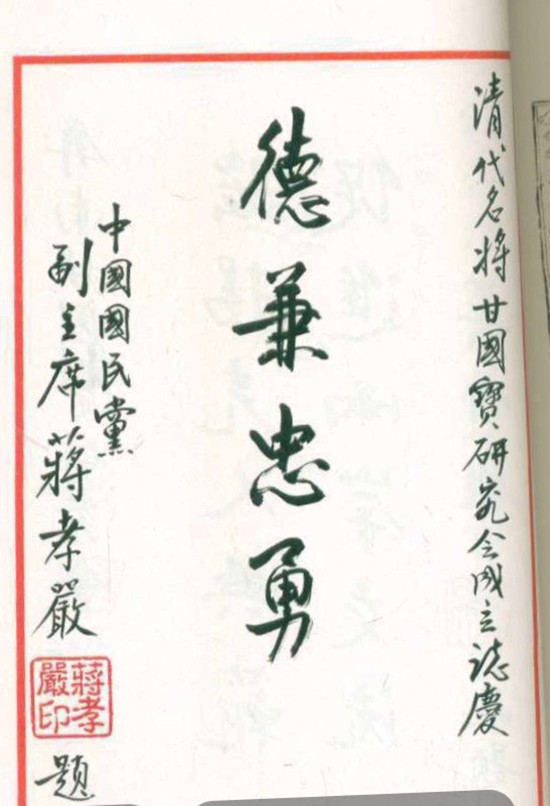 清代名將甘國寶研究会成立誌慶
德兼忠勇
中國國民黨
副主席蔣孝嚴
蔣孝嚴印
題